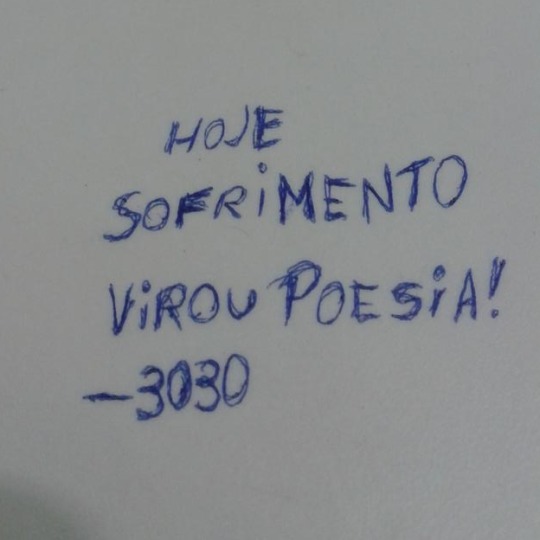 HOJE
SOFRiMENTO
ViROU POESiA!
—3030